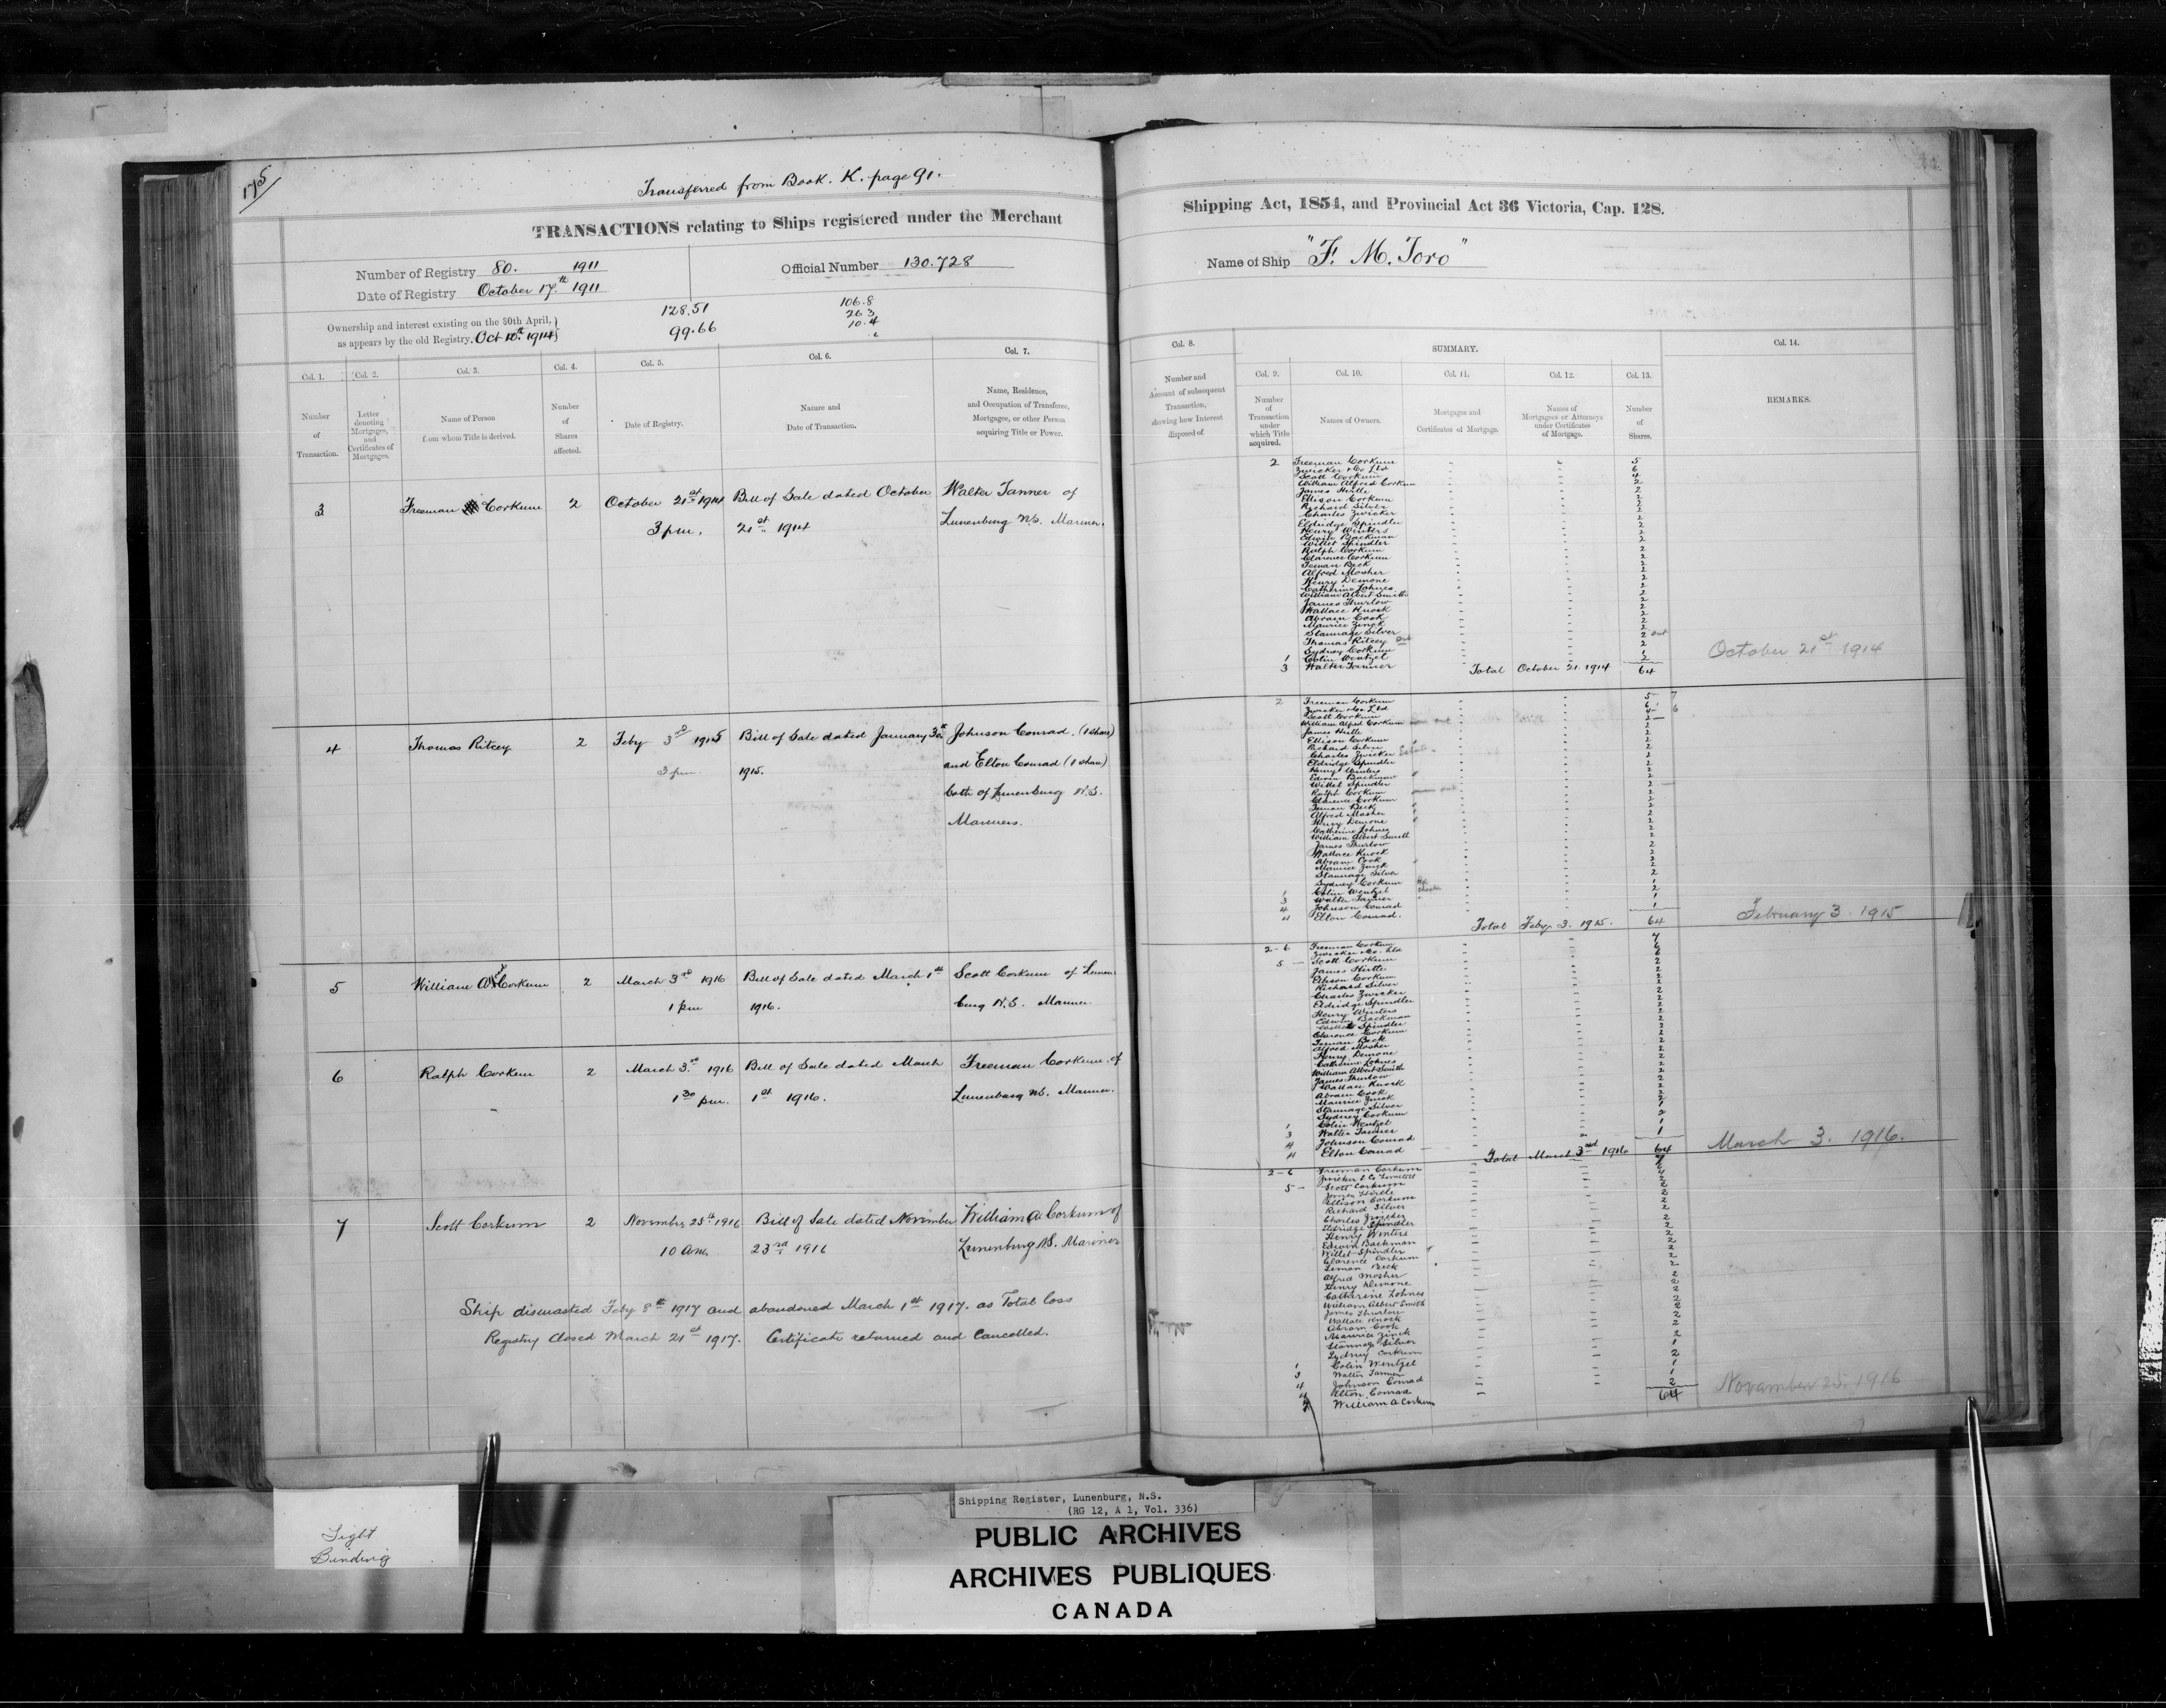 175
Transferred from Book. K. page 91.
TRANSACTIONS relating to Ships registered under the Merchant
Shipping Act, 1854, and Provincial Act 36 Victoria, Cap. 128.
Number of Registry 80. 1911
Official Number 130.728
Name of Ship "F. M. Toro"
Date of Registry October 17th 1911
128.51 106.8
26 3
Ownership and interest existing on the 30th April,
99.66 10.4
as appears by the old Registry. Oct 10th 1914
Col. 1. Col. 2. Col. 3. Col. 4. Col. 5. Col. 6. Col. 7.
Number of Transaction.
Letter denoting Mortgages, and Certificates of Mortgages.
Name of Person from whom Title is derived.
Number of Shares affected.
Date of Registry.
Nature and Date of Transaction.
Name, Residence, and Occupation of Transferee, Mortgagee, or other Person acquiring Title or Power.
3 Freeman Corkum 2 October 21st 1914 Bill of Sale dated October Walter Tanner of
3 pm. 21st 1914 Lunenburg N.S. Mariner.
4 Thomas Ritcey 2 Feby 3rd 1915 Bill of Sale dated January 30th Johnson Conrad. (1 share)
3 pm. 1915. and Elton Conrad (1 share)
both of Lunenburg N.S.
Mariners.
5 William Alfred Corkum 2 March 3rd 1916 Bill of Sale dated March 1st Scott Corkum of Lunen
1 pm 1916. burg N.S. Mariner.
6 Ralph Corkum 2 March 3rd 1916 Bill of Sale dated March Freeman Corkum of
1 30 pm. 1st 1916. Lunenburg N.S. Mariner.
7 Scott Corkum 2 November 25th 1916 Bill of Sale dated November William A. Corkum of
10 am. 23rd 1916 Lunenburg N.S. Mariner
Ship dismasted Feby 8th 1917 and abandoned March 1st 1917. as Total loss
Registry closed March 21st 1917. Certificate returned and Cancelled.
Col. 8. SUMMARY. Col. 14.
Col. 9. Col. 10. Col. 11. Col. 12. Col. 13.
Number and Account of subsequent Transaction, showing how Interest disposed of.
Number of Transaction under which Title acquired.
Names of Owners.
Mortgages and Certificates of Mortgage.
Names of Mortgagees or Attorneys under Certificates of Mortgage.
Number of Shares.
REMARKS.
2 Freeman Corkum 5
Zwicker & Co Ltd 6
Scott Corkum 4
William Alfred Corkum 2
James Hirtle 2
Ellison Corkum 2
Richard Silver 2
Charles Zwicker 2
Eldridge Spindler 2
Henry Winters 2
Edwin Backman 2
Willet Spindler 2
Ralph Corkum 2
Clarence Corkum 2
Teman Beck 2
Alfred Mosher 2
Henry Demone 2
Catherine Lohnes 2
William Albert Smith 2
James Thurlow 2
Wallace Knock 2
Abram Cook 2
Maurice Zinck 2
Stannage Silver 2
Thomas Ritcey out 2 out
Sydney Corkum 2
1 Colin Wentzel 1
3 Walter Tanner 2
Total October 21. 1914 64
October 21st 1914
2 Freeman Corkum 5 7
Zwicker & Co Ltd 6
Scott Corkum 4 6
William Alfred Corkum out 2
James Hirtle 2
Ellison Corkum 2
Richard Silver 2
Charles Zwicker 2
Eldridge Spindler 2
Henry Winters 2
Edwin Backman 2
Willet Spindler 2
Ralph Corkum out 2
Clarence Corkum 2
Teman Beck 2
Alfred Mosher 2
Henry Demone 2
Catherine Lohnes 2
William Albert Smith 2
James Thurlow 2
Wallace Knock 2
Abram Cook 2
Maurice Zinck 2
Stannage Silver 2
Sydney Corkum 2
1 Colin Wentzel 1
3 Walter Tanner 2
4 Johnson Conrad 1
4 Elton Conrad. 1
Total Feby 3. 1915. 64
February 3. 1915
2 - 6 Freeman Corkum 7
Zwicker & Co. Ltd 6
5 - Scott Corkum 6
James Hirtle 2
Ellison Corkum 2
Richard Silver 2
Charles Zwicker 2
Eldridge Spindler 2
Henry Winters 2
Edwin Backman 2
Willet Spindler 2
Clarence Corkum 2
Teman Beck 2
Alfred Mosher 2
Henry Demone 2
Catherine Lohnes 2
William Albert Smith 2
James Thurlow 2
Wallace Knock 2
Abram Cook 2
Maurice Zinck 2
Stannage Silver 2
Sydney Corkum 2
1 Colin Wentzel 1
3 Walter Tanner 2
4 Johnson Conrad 1
4 Elton Conrad 1
Total March 3rd 1916 64
March 3. 1916.
2 - 6 Freeman Corkum 7
Zwicker & Co Limited 6
5 - Scott Corkum 4
James Hirtle 2
Ellison Corkum 2
Richard Silver 2
Charles Zwicker 2
Eldridge Spindler 2
Henry Winters 2
Edwin Backman 2
Willet Spindler 2
Clarence Corkum 2
Teman Beck 2
Alfred Mosher 2
Henry Demone 2
Catherine Lohnes 2
William Albert Smith 2
James Thurlow 2
Wallace Knock 2
Abram Cook 2
Maurice Zinck 2
Stannage Silver 2
Sydney Corkum 2
1 Colin Wentzel 1
3 Walter Tanner 2
4 Johnson Conrad 1
4 Elton Conrad 1
7 William A Corkum 2
64
November 25. 1916
Tight
Binding
Shipping Register, Lunenburg, N.S.
(RG 12, A 1, Vol. 336)
PUBLIC ARCHIVES
ARCHIVES PUBLIQUES
CANADA